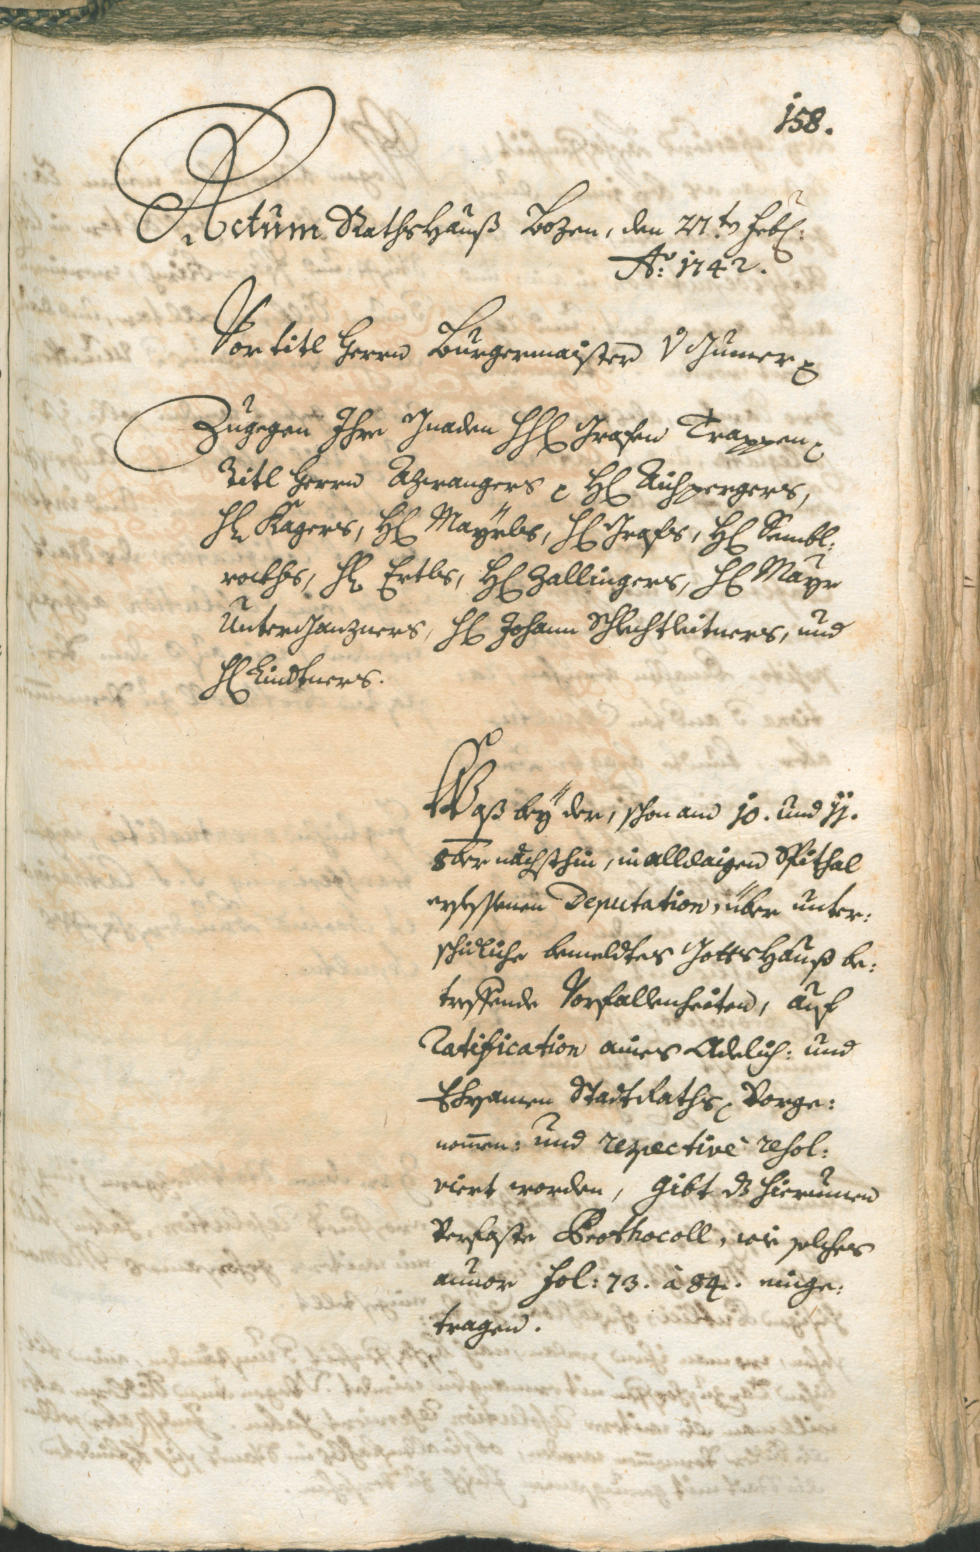 158.
Actum Rathshauß Bozen, den 27.tn Feb:
Ao: 1742.
Vor titl Herrn Burgermaistern V Gumer
Zugegen Ihre Gnaden Grafen Trappen
Titl Herrn Azwangers H Aichpergers,
H Kagers, H Mayrls, H Grafs, H Sembl:
rockhs, H Ertls, H Zallingers, H Mayr
Unterganzners, H Johann Schlechtleitners, und
H Lindtners.
Waß bey der, schon am 10. und 11.
8ber nächsthin, in alldaigen Spithal
gesessenen Deputation, über unter:
schidliche bemeldtes Gottshauß be:
treffende Vorfallenheiten, auf
Ratification aines Adelich: und
Ehrsamen Stadtraths, Vorge:
nommen: und respective resol:
viert worden, gibt dz hierumen
Verfaste Prothocoll, wie solches
anvor fol: 73. à 84. einge:
tragen.